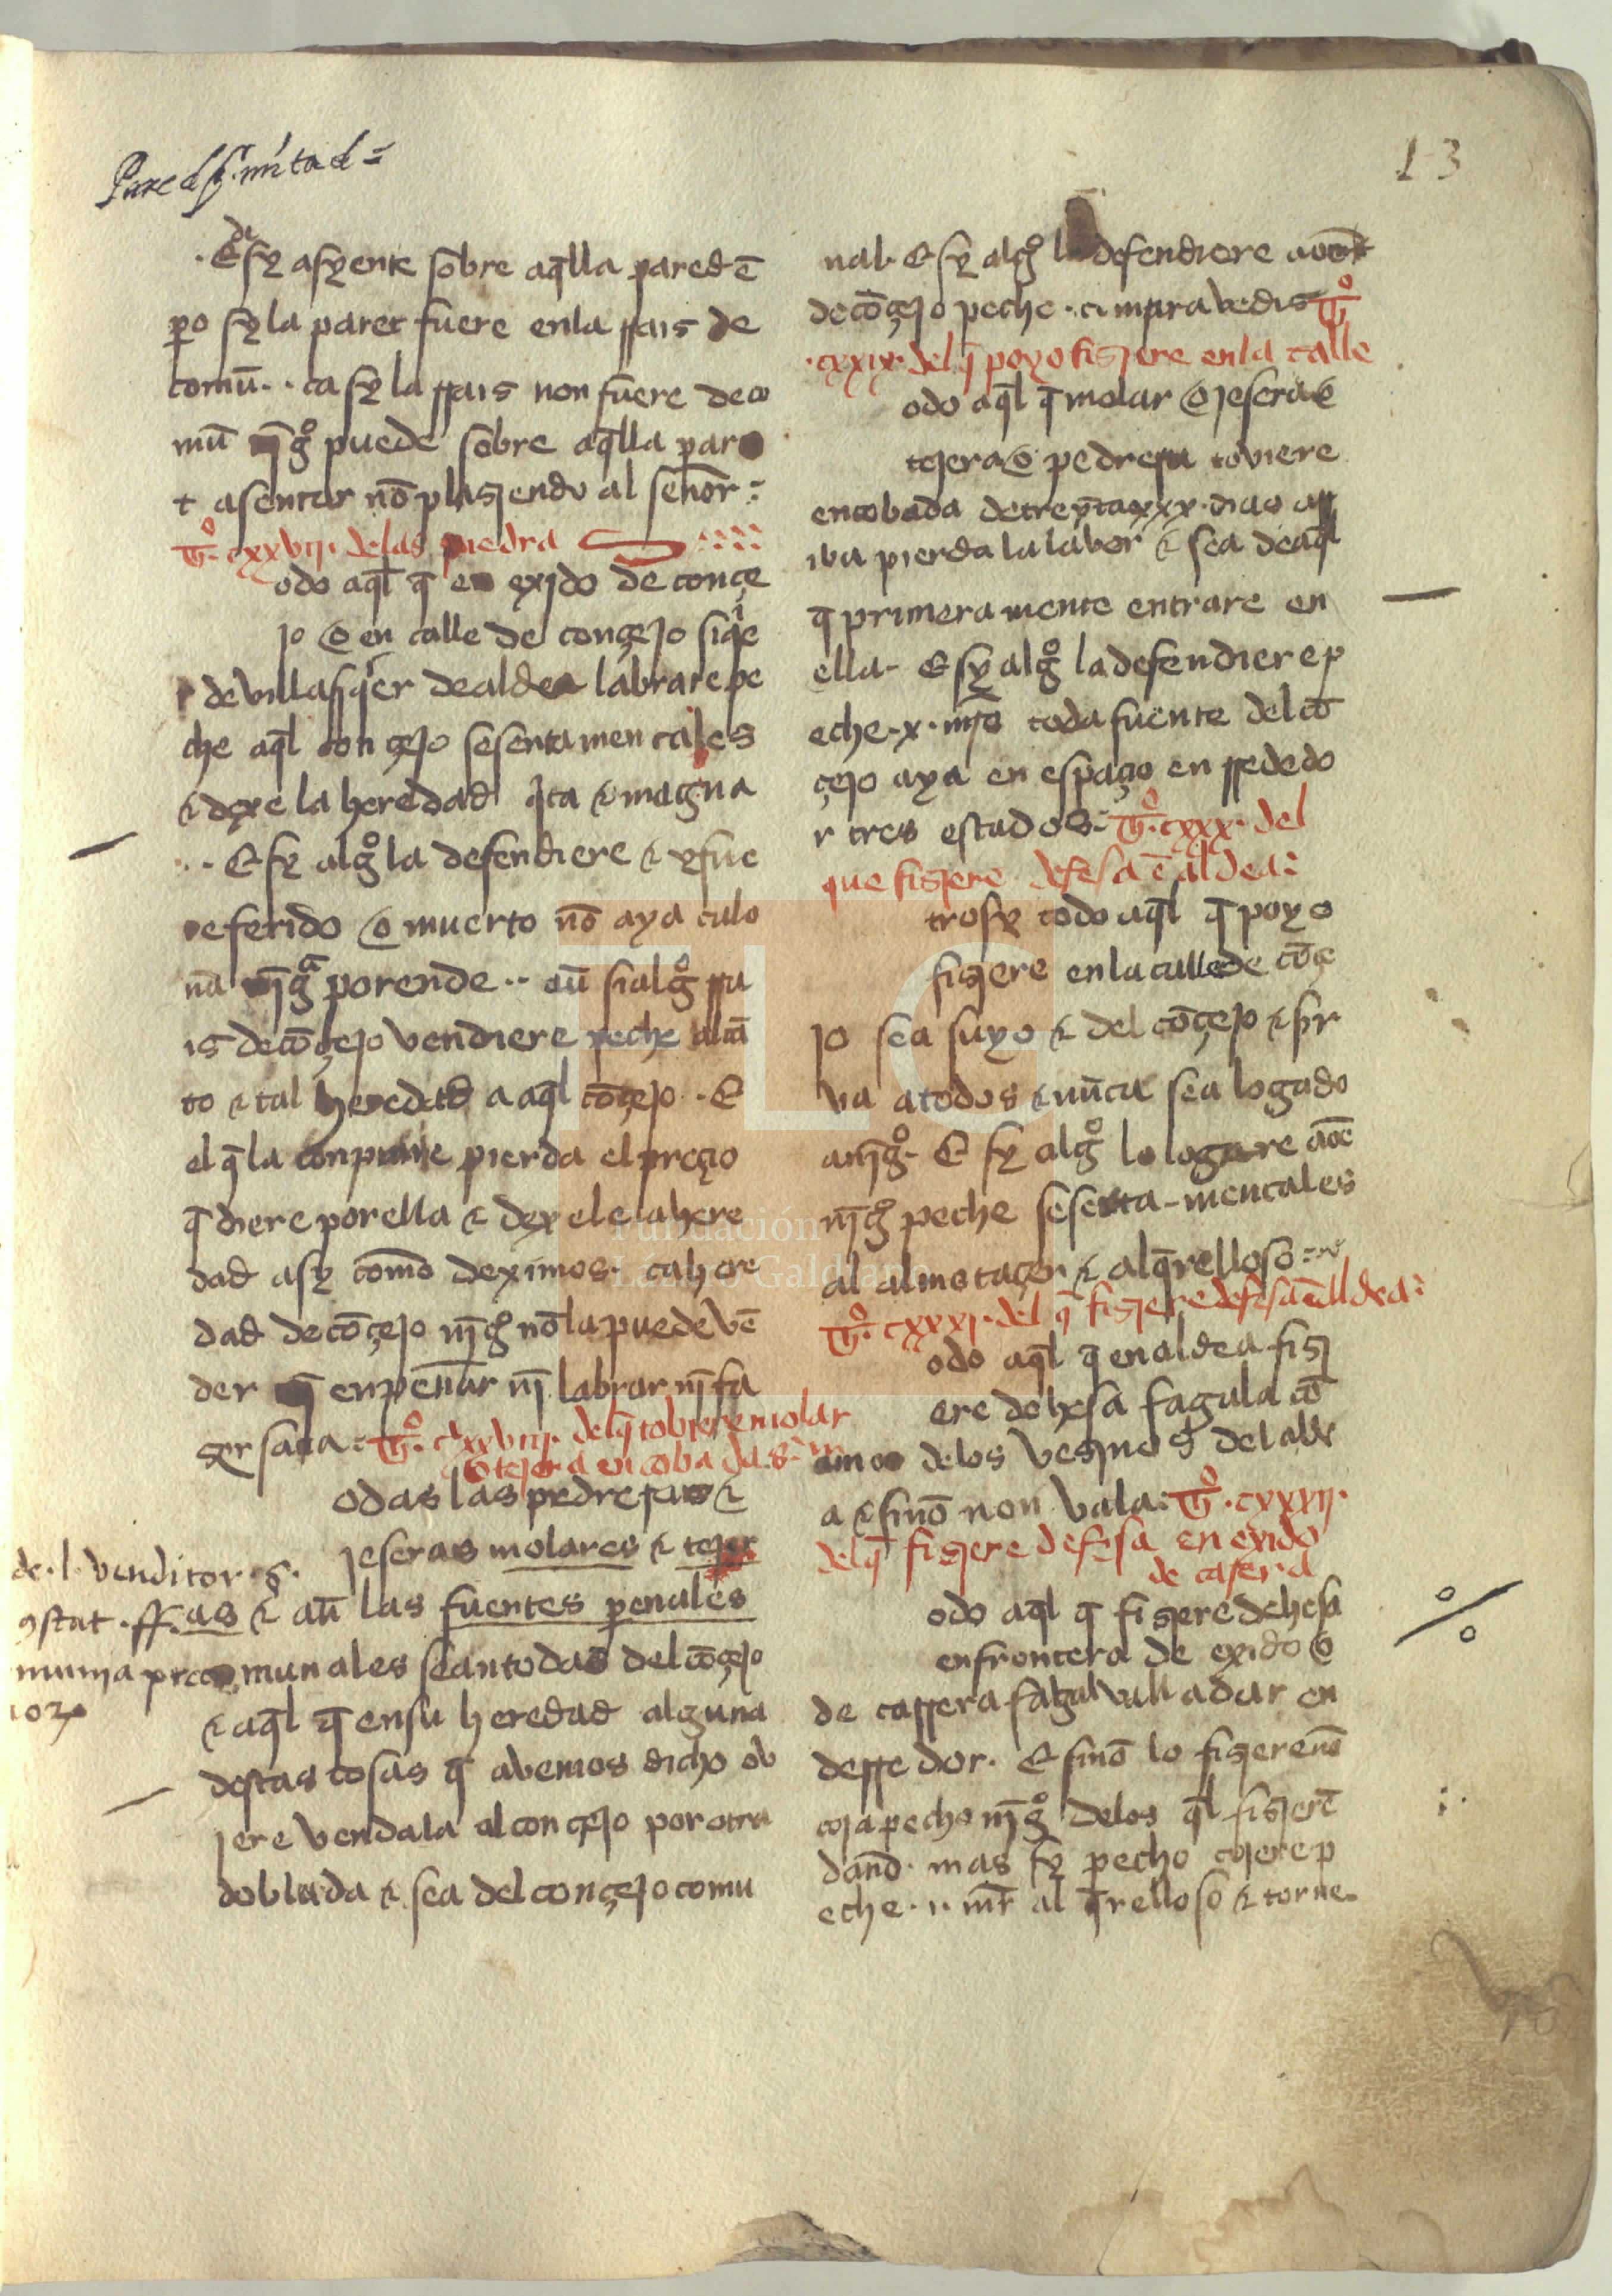 13
E sy asyente sobre aq̄lla pared ē
ꝑo sy la paret fuere en la rrais de
comū. ca sy la rrais non fuere deco
mū nīgº puede sobre aq̄lla pare
t asentar nō plasiendo al señor
Tº. cxxvij. de las piedra
odo aq̄l q̄ en exido de conçe
jo o en calle de conçejo siqͥe
r de villa siqͥer de aldea labrare pe
che aq̄l conçejo sesenta mencales
⁊ dexe la heredad qͥta ⁊ magna
E sy algº la defendiere ⁊ y fue
re ferido o muerto nō aya calo
na nīgª por ende aū si algº rra
is de cōçejo vendiere peche al tā
to ⁊ tal heredad a aq̄l cōçejo. E
el q̄ la conprare pierda el preçio
q̄ diere por ella ⁊ dexele la here
dad asy como deximos. ca here
dad de cōçejo nīgº nō la puede vē
der enpeñar nī labrar nī fa
ser sana: Tº. cxxviij. del q̄ tobiere molar
o tejera encobadas
odas las pedreras ⁊
jeseras molares ⁊ tejer
as ⁊ aū las fuentes perenales
munales sean todas del cōçejo
⁊ aq̄l q̄ en su heredad alguna
destas cosas q̄ abemos dicho ob
iere vendala al conçejo por otra
doblada ⁊ sea del conçejo comu
nal. E sy algº la defendiere
de cōçejo peche maravedis Tº
cxxix. del q̄ poyo fisiere en la calle
odo aq̄l q̄ molar o jesera o
tejera o pedrera toviere
encobada de treȳta xxx dias arr
iba pierda la labor ⁊ sea de aq̄l
q̄ primera mente entrare en
ella. E sy algº la defendiere p
eche. x. mr̄s toda fuente del cō
çejo aya en espaçio en rrededo
r tres estados: Tº. cxxx. del
que fisiere defesa ē aldea:
trosy todo aq̄l q̄ poyo
fisiere en la calle de cōçe
jo sea suyo ⁊ del cōçejo ⁊ sir
va a todos ⁊ nūca sea logado
a nīgº. E sy algº lo logare
nīgº peche sesēta mencales
al almotaçen ⁊ al q̄relloso
Tº. cxxxj. del q̄ fisiere defesa en alldea:
odo aq̄l q̄ en aldea fisi
ere dehesa fagala cō
amor de los vesinos del alde
a ⁊ sinō non vala: Tº. cxxxij.
del q̄ fisiere defesa en exido
de casera
odo aq̄l q̄ fisiere dehesa
en frontera de exido o
de carrera fagal valladar en
derredor. E sinō lo fisiere nō
coja pecho nīgº de los q̄l fisierē
daño. mas sy pecho cojere p
eche. al q̄relloso ⁊ torne